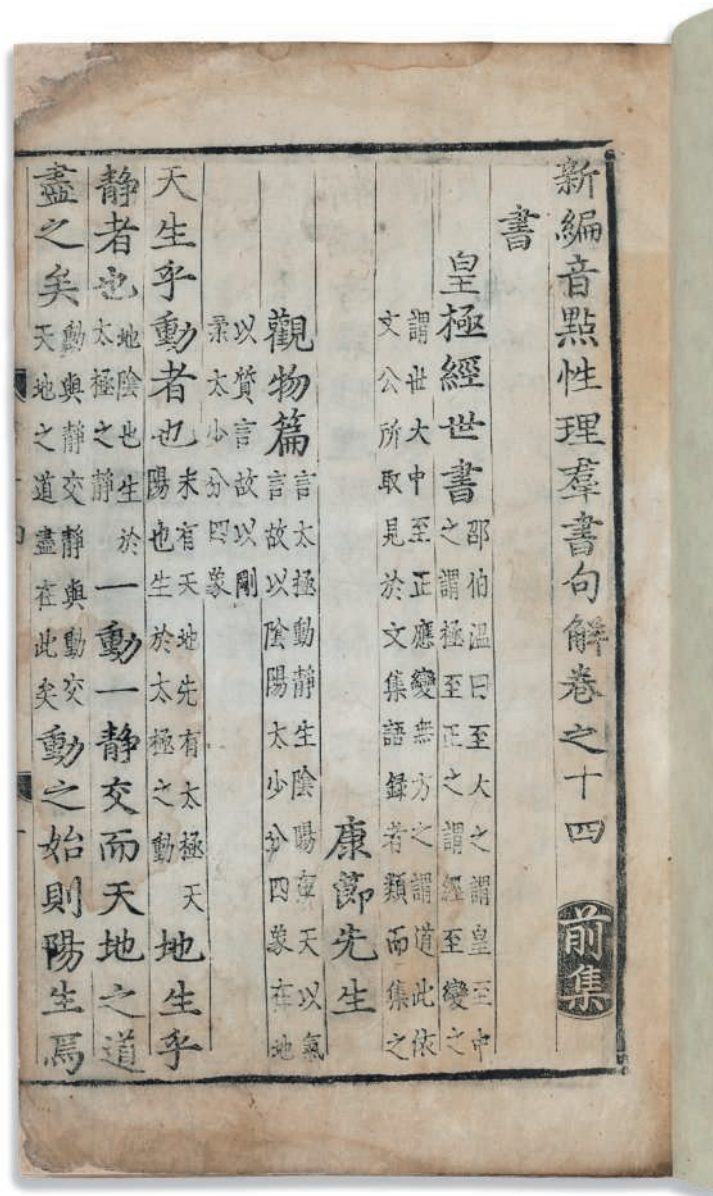 新編音點性理羣書句解卷之十四 前集
書
皇極經世書 邵伯温曰至大之謂皇至中
之謂極至正之謂經至變之
謂世大中至正應變無方之謂道此依
文公所取見於文集語録者類而集之
康節先生
觀物篇 言太極動靜生陰陽在天以氣
言故以陰陽太少分四象在地
以質言故以剛
柔太少分四象
天生乎動者也 未有天地先有太極天
陽也生於太極之動 地生乎
静者也 地陰也生於
太極之静 一動一静交而天地之道
盡之矣 動與静交静與動交
天地之道盡在此矣 動之始則陽生焉